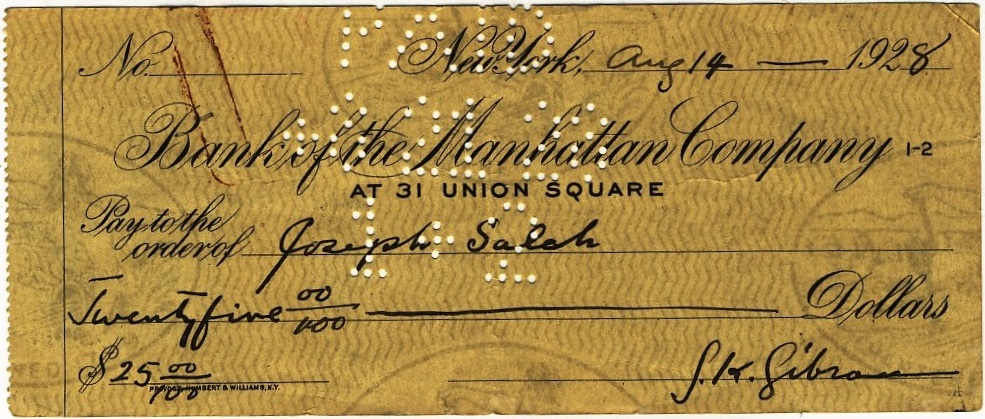 No. New York, Aug 14 — 1928
Bank of the Manhattan Company 1-2
AT 31 UNION SQUARE
Pay to the
order of Joseph Saleh
Twenty five 00/100 Dollars
$ 25 00/100 G. K. Gibran
PROVOST, HUMBERT & WILLIAMS, N.Y.
PAID
1-2